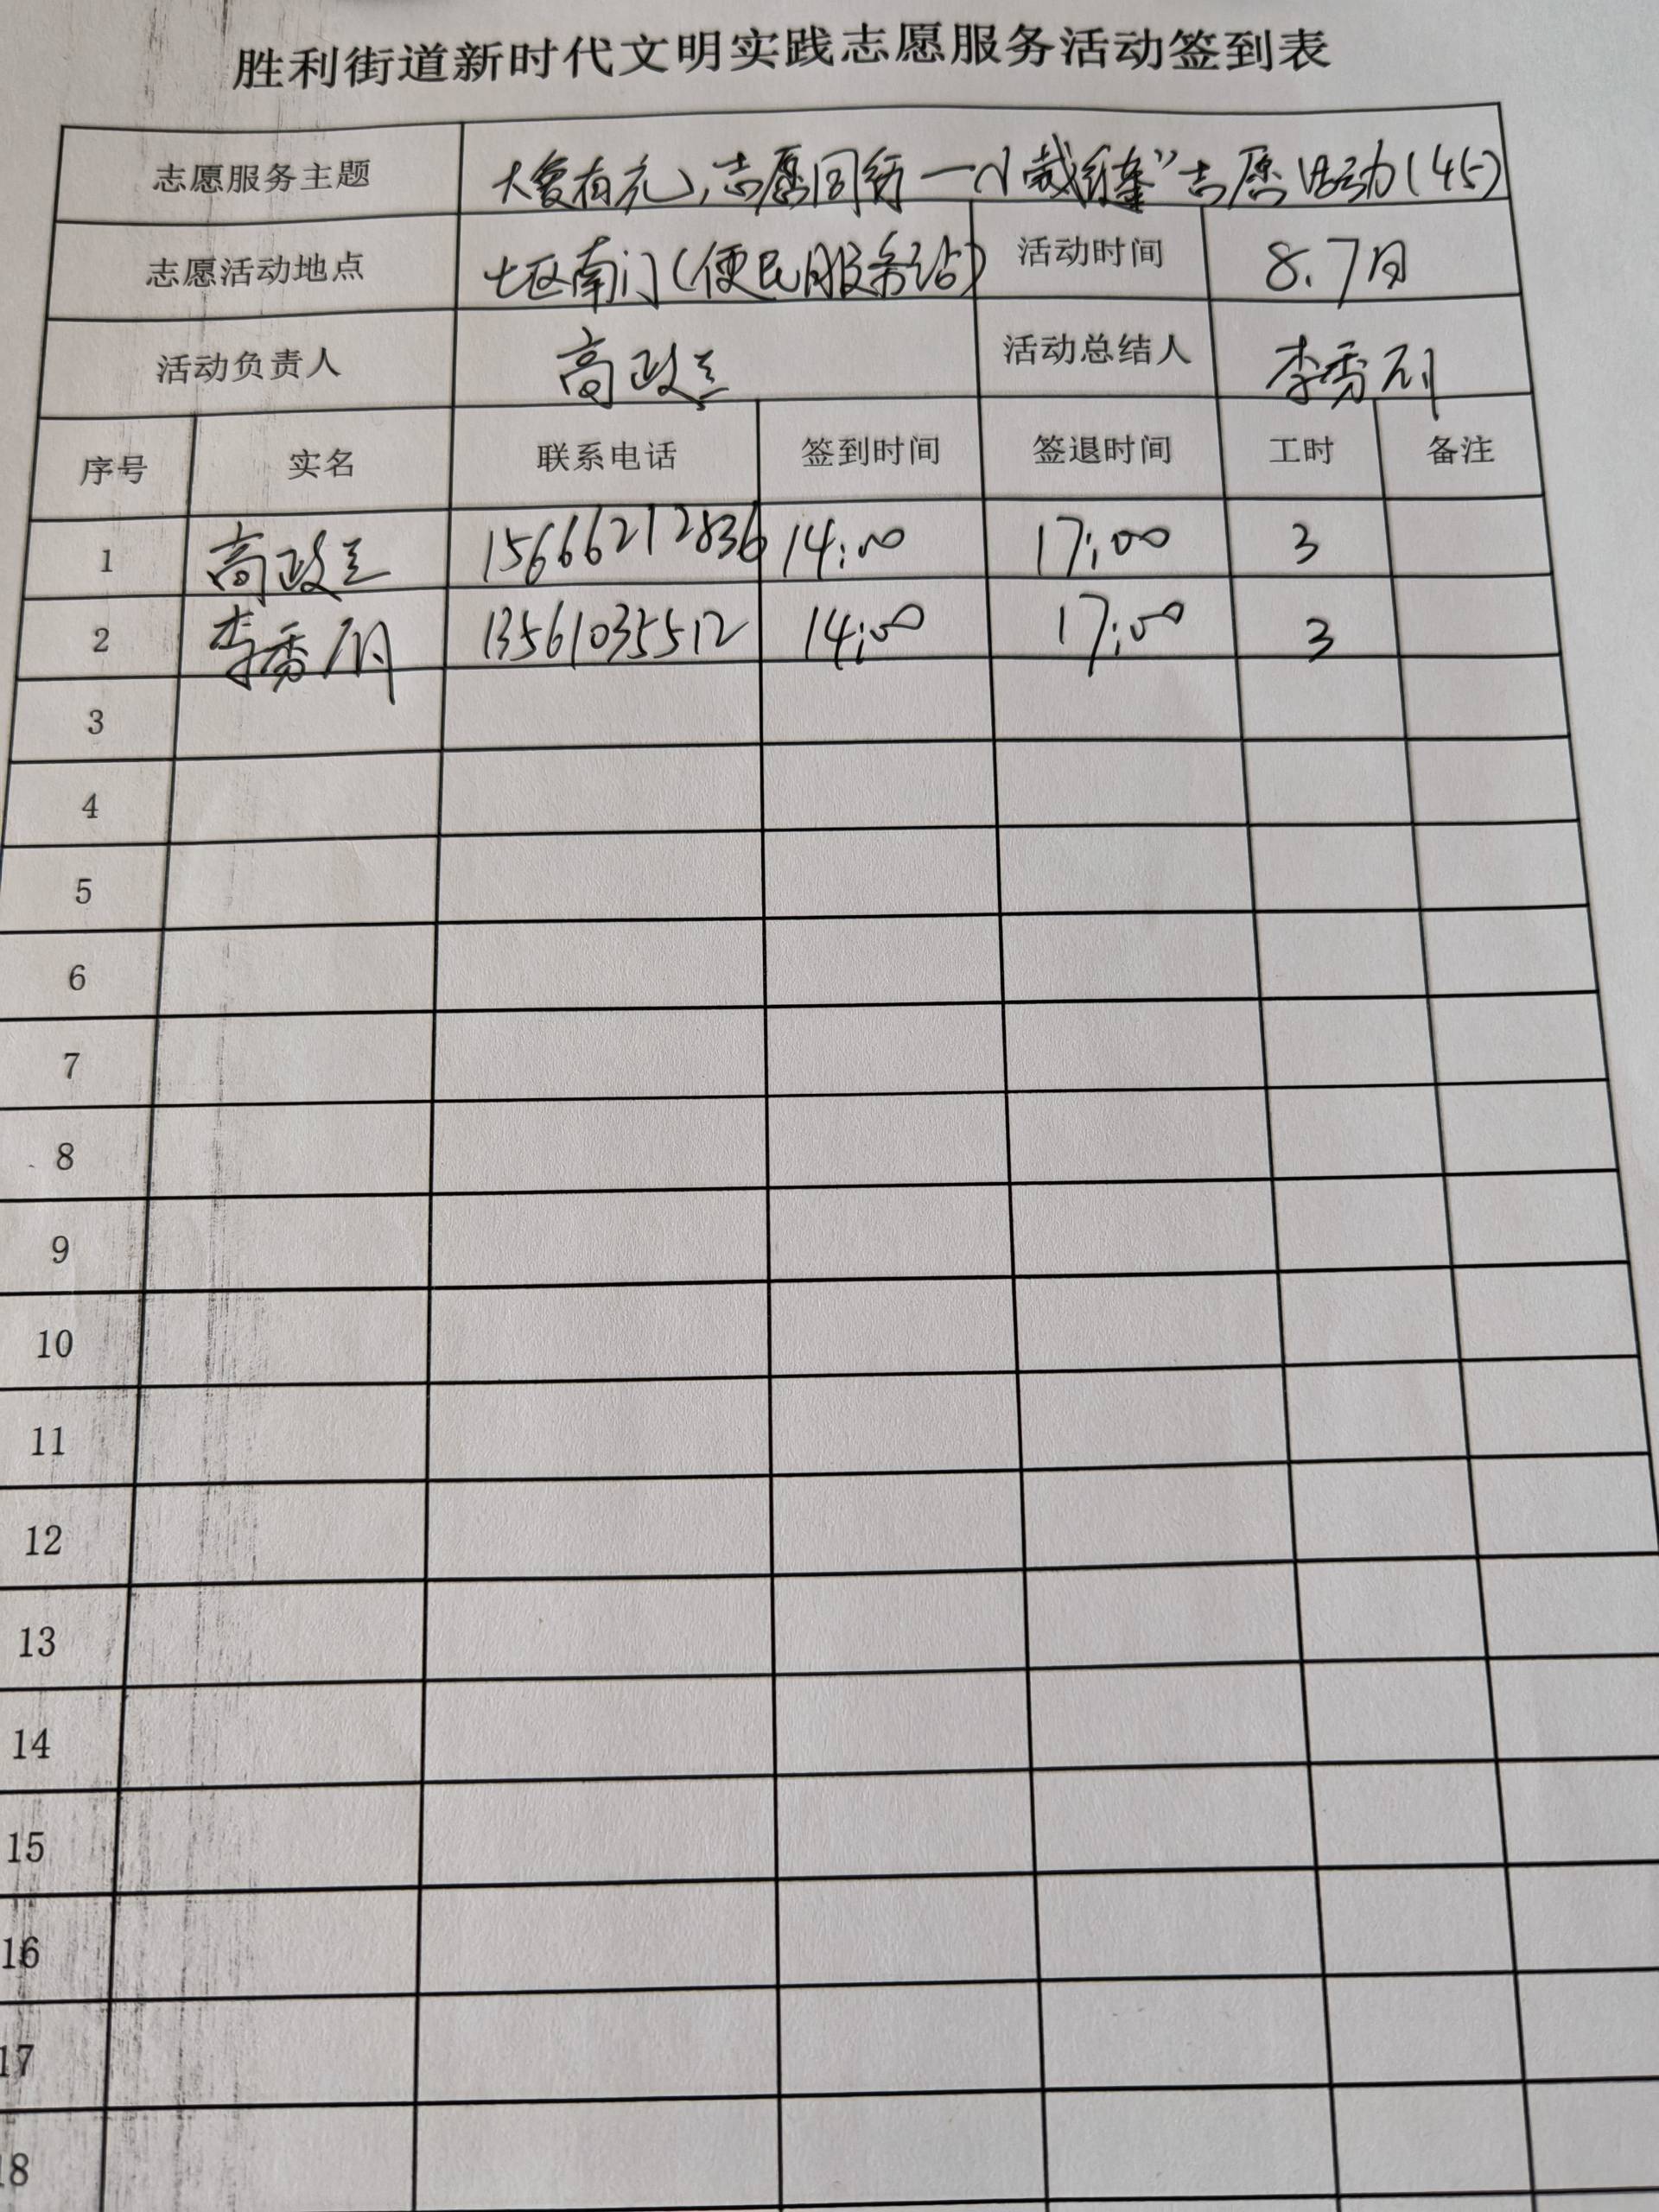 胜利街道新时代文明实践志愿服务活动签到表
志愿服务主题 大爱有光,志愿同行一"小裁缝"志愿活动(45)
志愿活动地点 七区南门(便民服务站) 活动时间 8.7日
活动负责人 高政 活动总结人 李秀
序号 实名 联系电话 签到时间 签退时间 工时 备注
1 高政 15666212836 14:00 17:00 3
2 李秀 13561035512 14:00 17:00 3
3
4
5
6
7
8
9
10
11
12
13
14
15
16
17
18